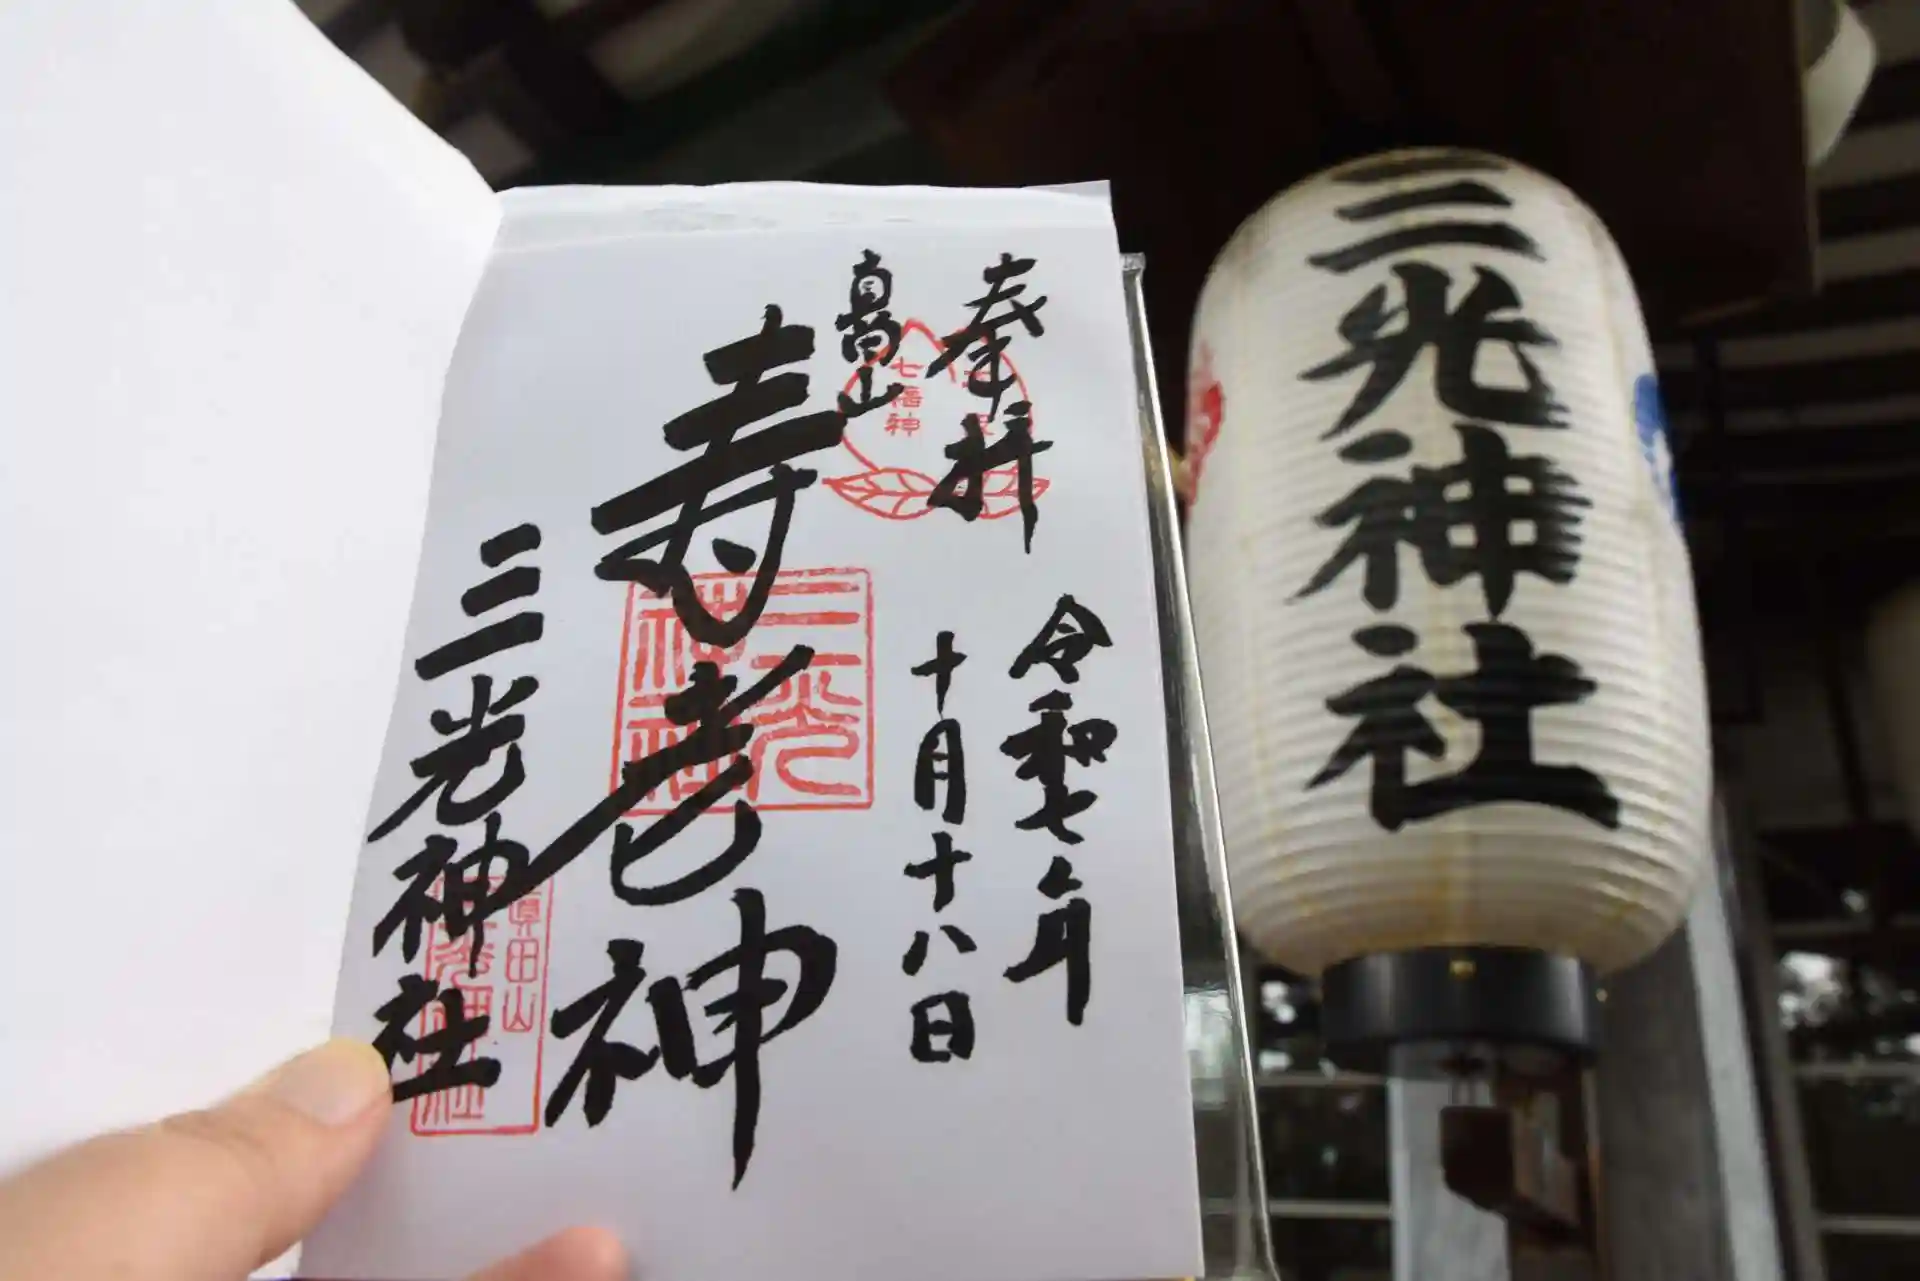 奉拝
令和七年
十月十八日
七福神
寿老神
三光神社
三光神社
眞田山
三光神社
三光神社